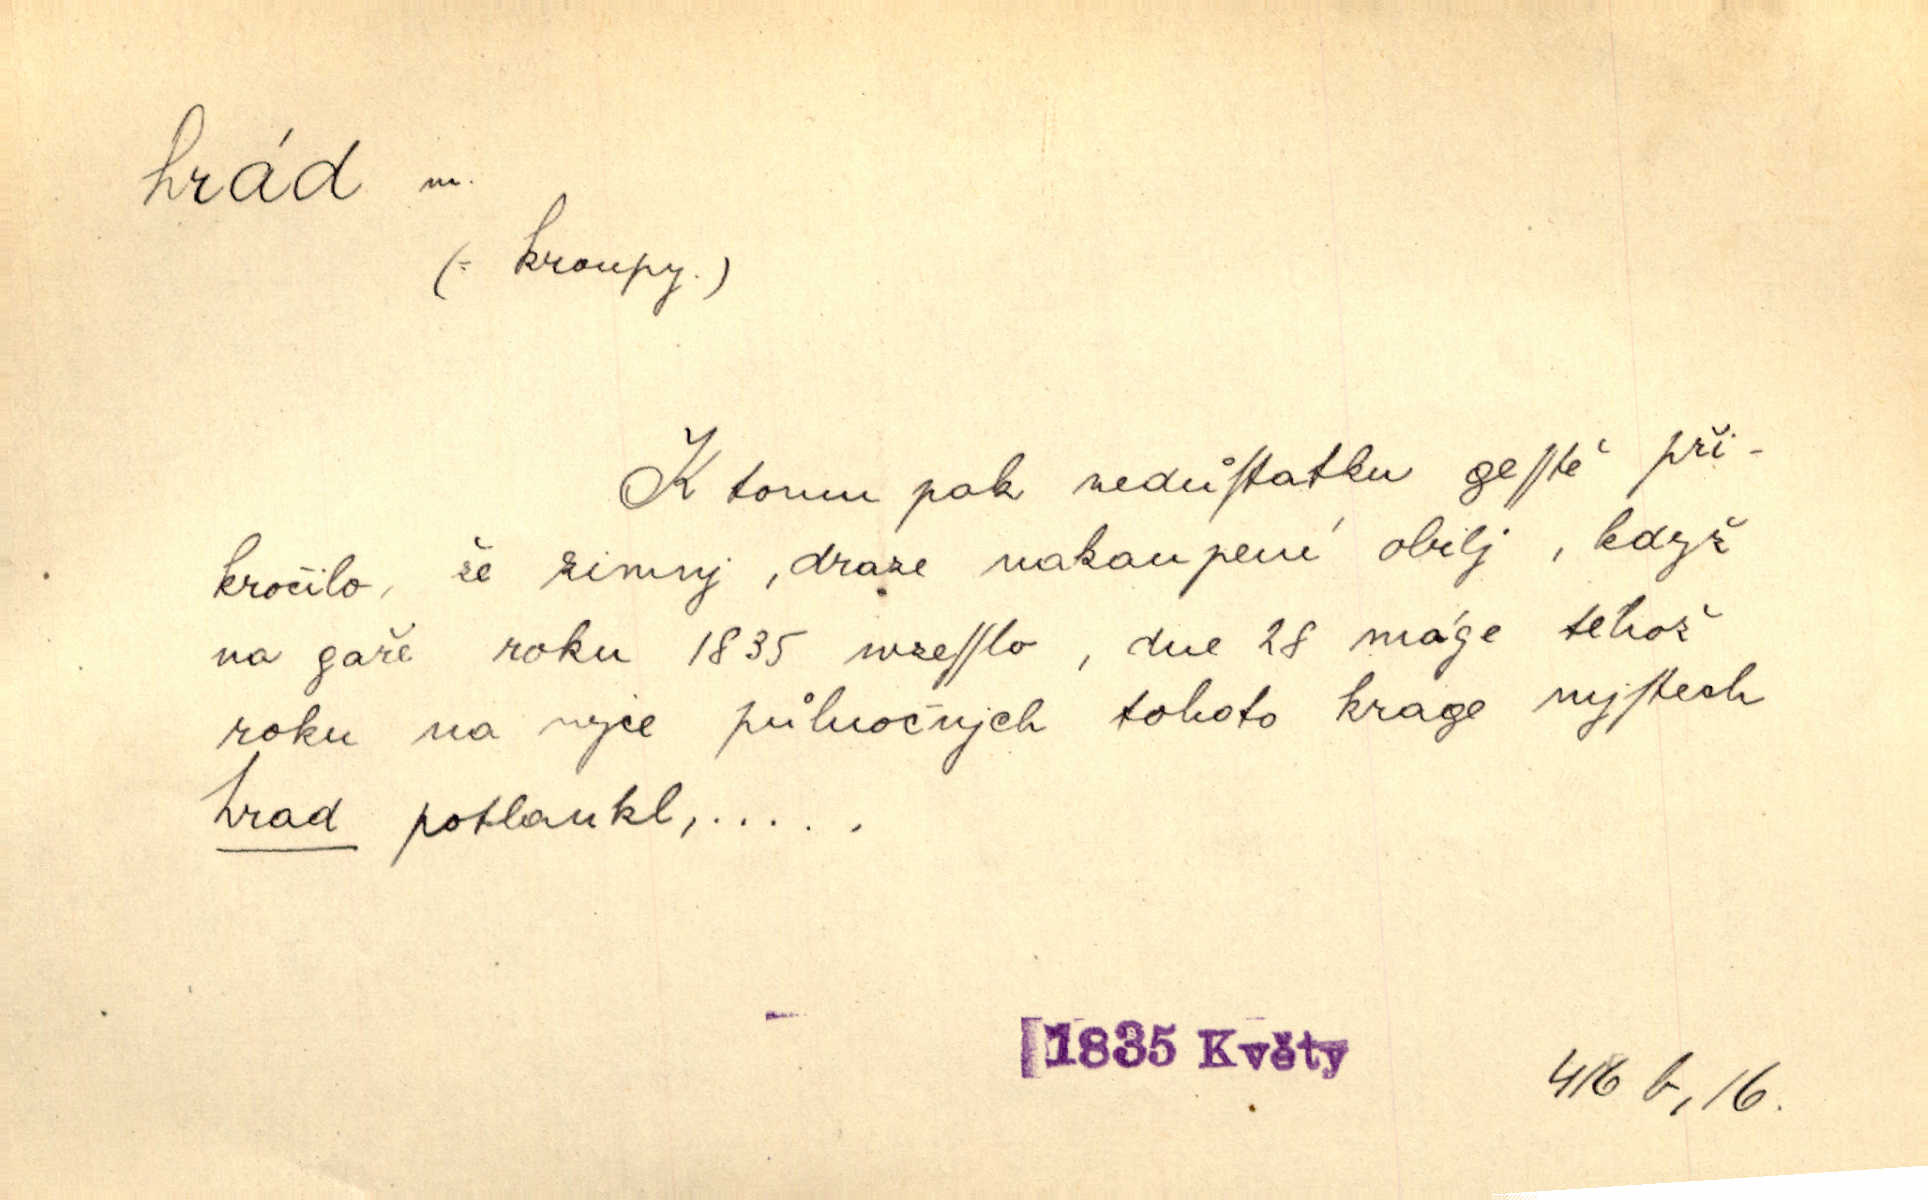 hrád m.
(= kroupy.)
K tomu pak nedůſtatku geſſtě při-
kročilo, že zimnj, draze nakaupení obilj, když
na gaře roku 1835 wzeſſlo, dne 28 máge tehož
roku na wjce půlnočnjch tohoto krage mjſtech
hrad potlaukl,.....
1835 Květy
416 b, 16.